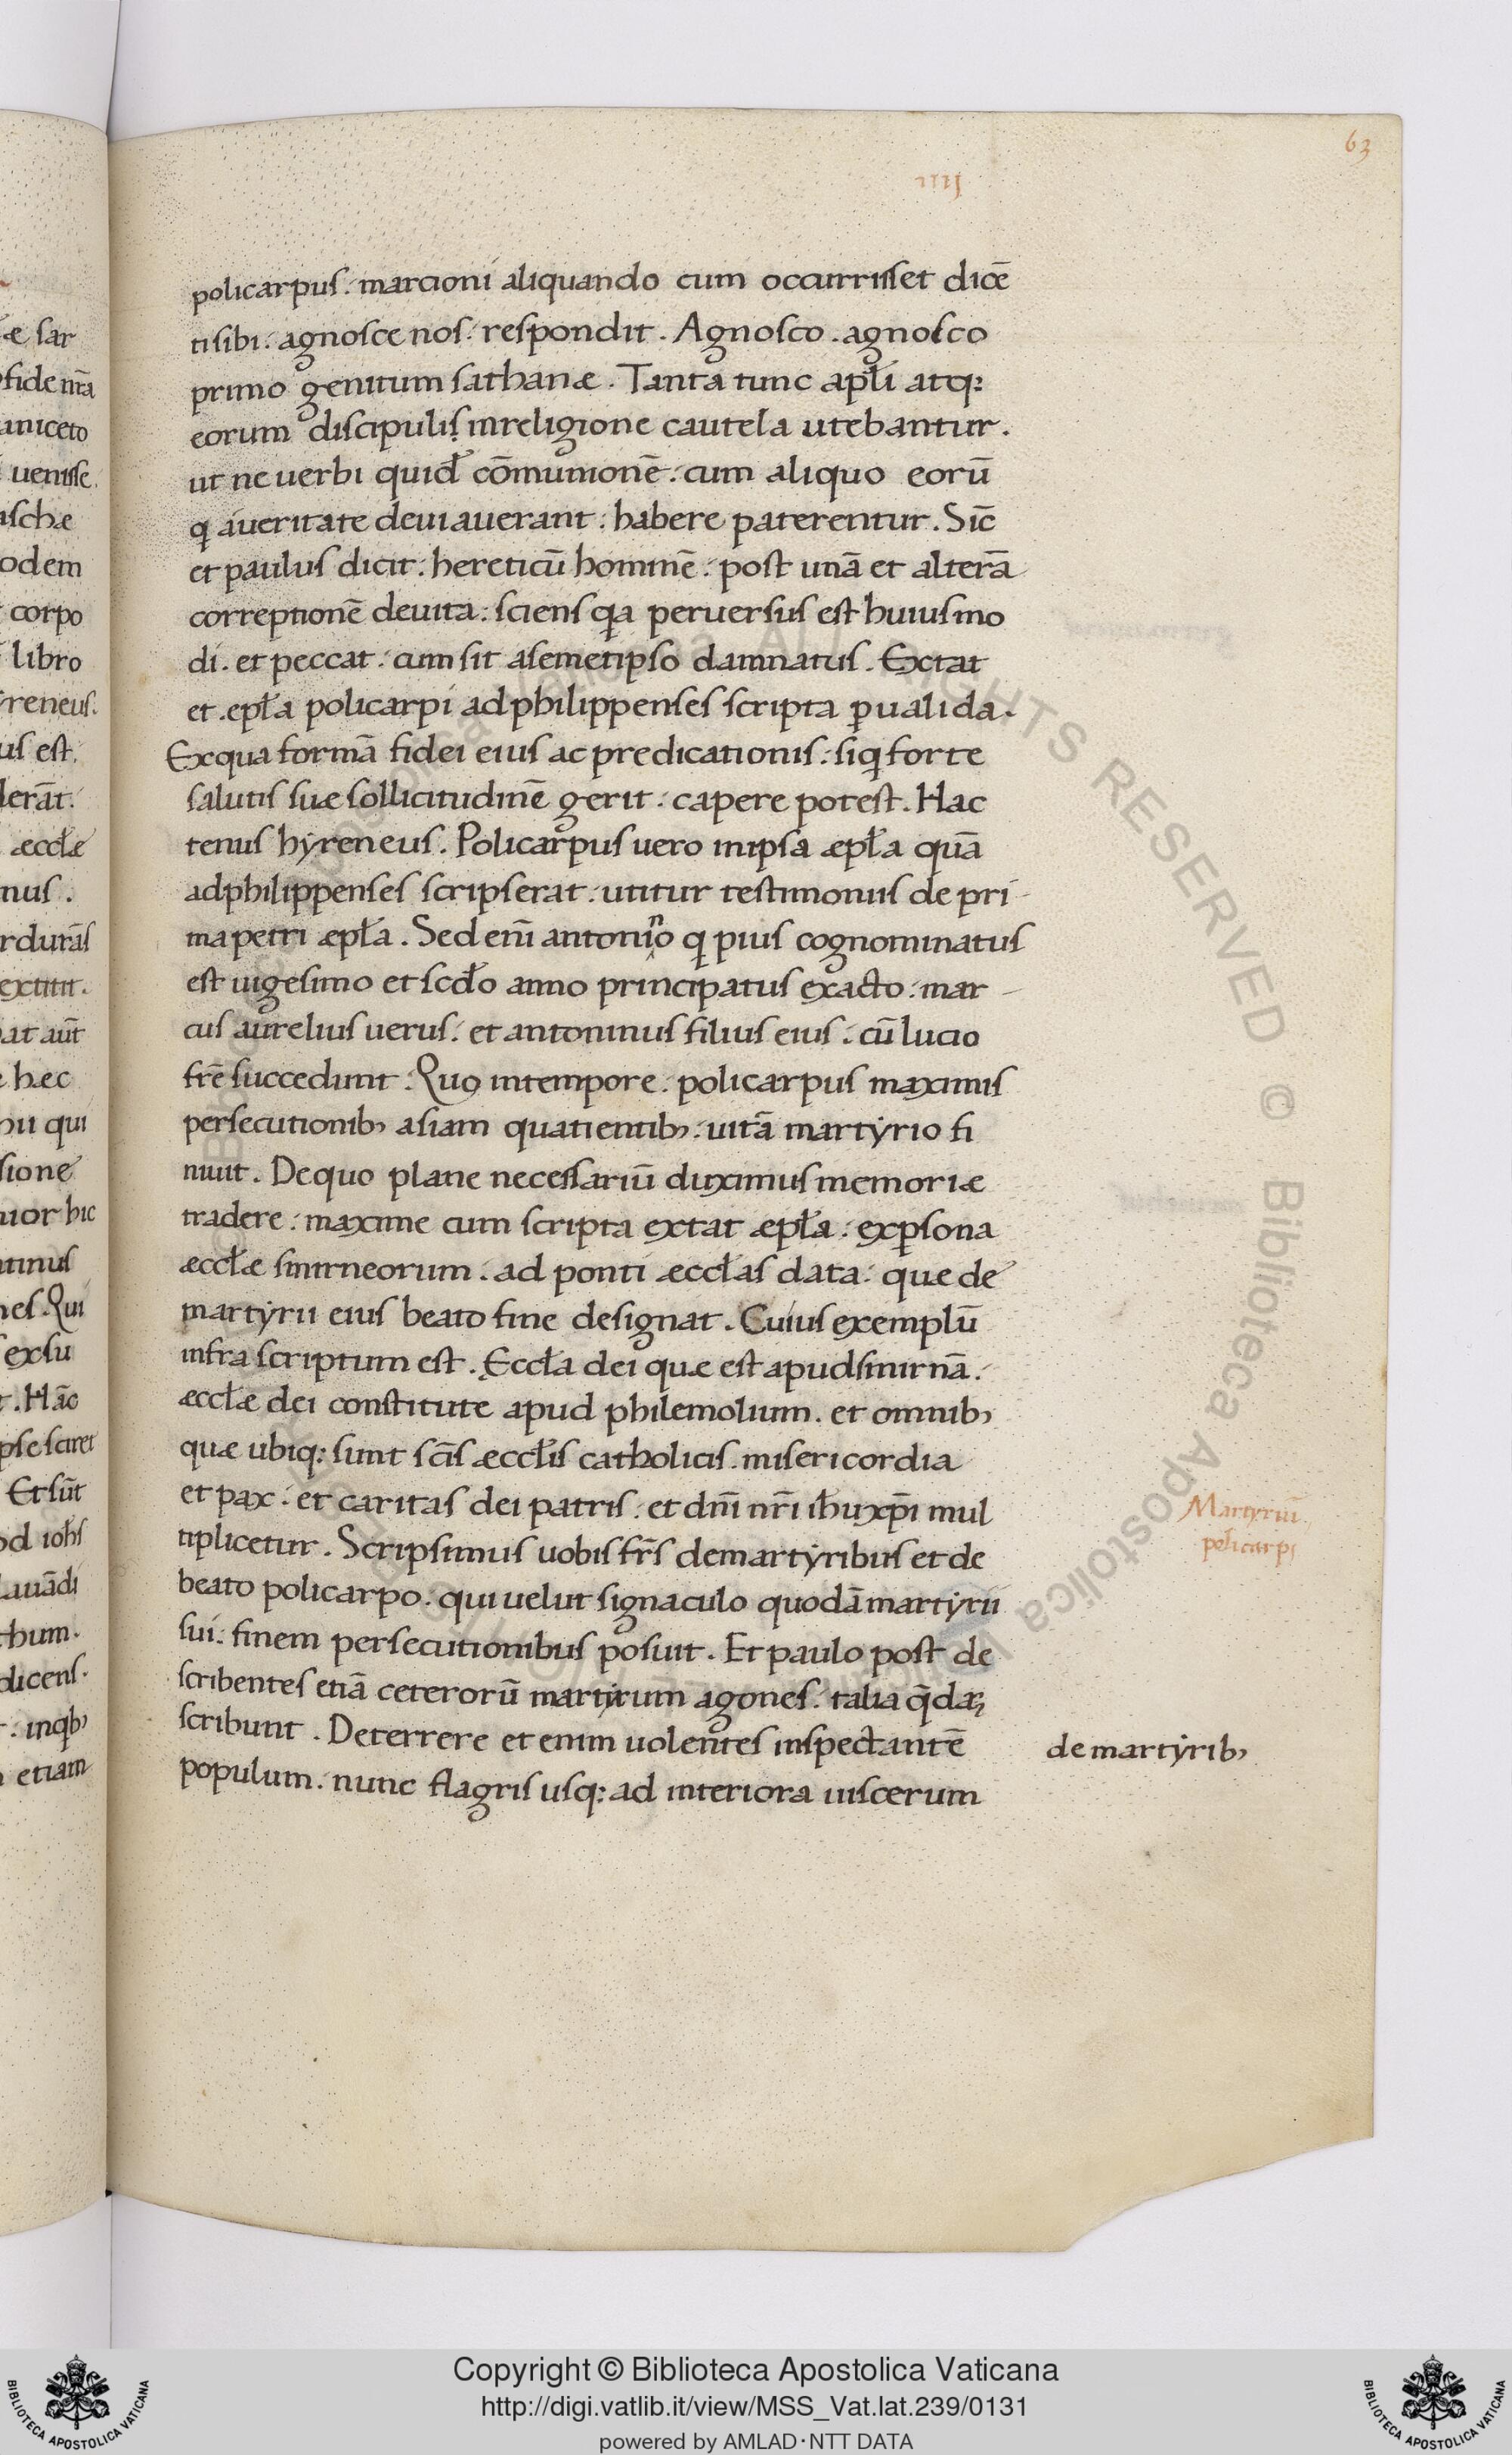 63
IIII
policarpus. marcioni aliquando cum occurrisset dicē
ti sibi. agnosce nos. respondit. Agnosco. agnosco
primo genitum sathanæ. Tanta tunc apł̄i atq;
eorum discipulis inreligione cautela utebantur.
ut ne uerbi quid̄ cōmunionē. cum aliquo eorū
q̇ áueritate deuiauerant. habere paterentur. Sic̄
et paulus dicit. hereticū hominē. post unā et alterā
correptionē deuita. sciens qa peruersus est huiusmo
di. et peccat. cum sit asemetipso damnatus. Extat
et. epł̄a policarpi adphilippenses scripta ꝑualida.
Exqua formā fidei eius ac predicationis. siq forte
salutis suæ sollicitudinē gerit. capere potest. Hac
tenus hyreneus. Policarpus uero inipsa æpł̄a quā
adphilippenses scripserat. utitur testimoniis de pri
ma petri æpł̄a. Sed eni̅ antoniño q pius cognominatus
est uigesimo et scd̄o anno principatus exacto. mar
cus aurelius uerus. et antoninus filius eius. cū lucio
fr̄e succedunt. Quo intempore. policarpus maximis
persecutionib; asiam quatientib;. uitā martyrio fi
niuit. Dequo plane necessariū duximus memoriæ
tradere. maxime cum scripta extat æpł̄a. exꝑsona
æccłæ smirneorum. ad ponti æccłas data. quæ de
martyrii eius beato fine designat. Cuius exemplū
infra scriptum est. Eccła dei quæ est apudsmirnā.
æccłæ dei constitute apud philemolium. et omnib;
quæ ubiq; sunt sc̄is æccłis catholicis. misericordia
et pax. et caritas dei patris. et dn̄i nr̄i ih̄u xp̄i mul
tiplicetur. Scripsimus uobis fr̄s demartyribus et de
beato policarpo. qui uelut signaculo quodā martyrii
sui. finem persecutionibus posuit. Et paulo post de
scribentes etiā ceterorū martyrum agones. talia q̄dā
scribunt. Deterrere et enim uolentes inspectantē
populum. nunc flagris usq; ad interiora uiscerum
Martyriū
policarpi
demartyrib;
æ sar
fide nr̄a
aniceto
uenisse.
odem
corpo
libro
yreneus.
us est.
lerāt.
æccłæ
nus.
rdurās
extitit.
at aūt
hæc
qui
sione
ior hic
tinus
es. Qui
exsu
. Hāc
pse sciret
Et sūt
od ioh̄s
lauādi
thum.
dicens.
. inqb;
etiam
Copyright © Biblioteca Apostolica Vaticana
http://digi.vatlib.it/view/MSS_Vat.lat.239/0131
powered by AMLAD·NTT DATA
BIBLIOTECA APOSTOLICA VATICANA
BIBLIOTECA APOSTOLICA VATICANA